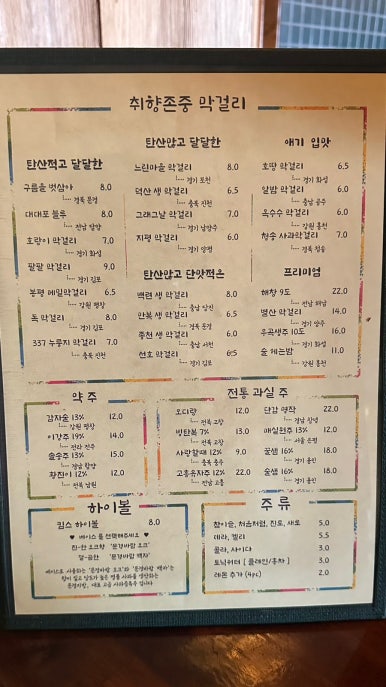 취향존중 막걸리
탄산적고 달달한
구름을 벗삼아 8.0
경북 문경
대대포 블루 8.0
전남 담양
호랑이 막걸리 7.0
경기 화성
팔팔 막걸리 9.0
경기 김포
봉평 메밀막걸리 6.5
강원 평창
독 막걸리 8.0
경기 김포
337 누룽지 막걸리 7.0
충북 진천
탄산많고 달달한
느린마을 막걸리 8.0
경기 포천
덕산 생 막걸리 6.5
충북 진천
그래그날 막걸리 7.0
경기 남양주
지평 막걸리 6.0
경기 양평
탄산많고 단맛적은
백련 생 막걸리 8.0
충남 당진
만복 생 막걸리 6.5
경북 문경
춘천 생 막걸리 6.0
충남 서천
선호 막걸리 6.5
경기 김포
애기 입맛
호땅 막걸리 6.5
경기 화성
알밤 막걸리 6.0
충남 공주
옥수수 막걸리 6.0
강원 홍천
청송 사과막걸리 7.0
경북 청송
프리미엄
해창 9도 22.0
전남 해남
별산 막걸리 14.0
경기 양주
우곡생주 10도 16.0
경기 화성
술 헤는밤 11.0
강원 홍천
약 주
감자술 13% 12.0
강원 평창
이강주 19% 14.0
전라 전주
솔송주 13% 15.0
경남 함양
황진이 12% 12.0
전북 남원
전통 과실 주
오디랑 12.0
전북 고창
빙탄복 7% 13.0
전북 고창
사랑할때 12% 9.0
충북 충주
고흥유자주 12% 22.0
전남 고흥
단감 명작 22.0
경남 창녕
매실원주 13% 12.0
서울 은평
꿀샘 16% 18.0
경기 용인
술샘 16% 18.0
경기 용인
하이볼
킬스 하이볼 8.0
♥ 베이스를 선택해주세요 ♥
진-한 오크향 '문경바람 오크'
깔-끔한 '문경바람 백자'
베이스로 사용하는 '문경바람 오크'와 '문경바람 백자'는
향이 깊고 당도가 높은 명품 사과를 생산하는
문경지방, 대표 고급 사과증류주 입니다
주 류
참이슬, 처음처럼, 진로, 새로 5.0
테라, 켈리 5.5
콜라, 사이다 3.0
토닉워터 [ 플레인/홍차 ] 3.0
레몬 추가 (4pc) 2.0